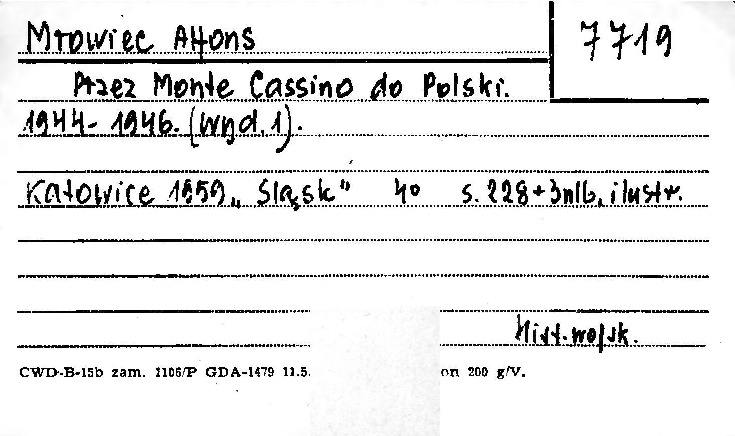 Mrowiec Alfons
7719
Przez Monte Cassino do Polski.
1944-1946. (Wyd. 1).
Katowice 1959 „Śląsk" 4° s. 228+3nlb, ilustr.
Hist. wojsk.
CWD-B-15b zam. 1106/P GDA-1479 11.5. on 200 g/V.